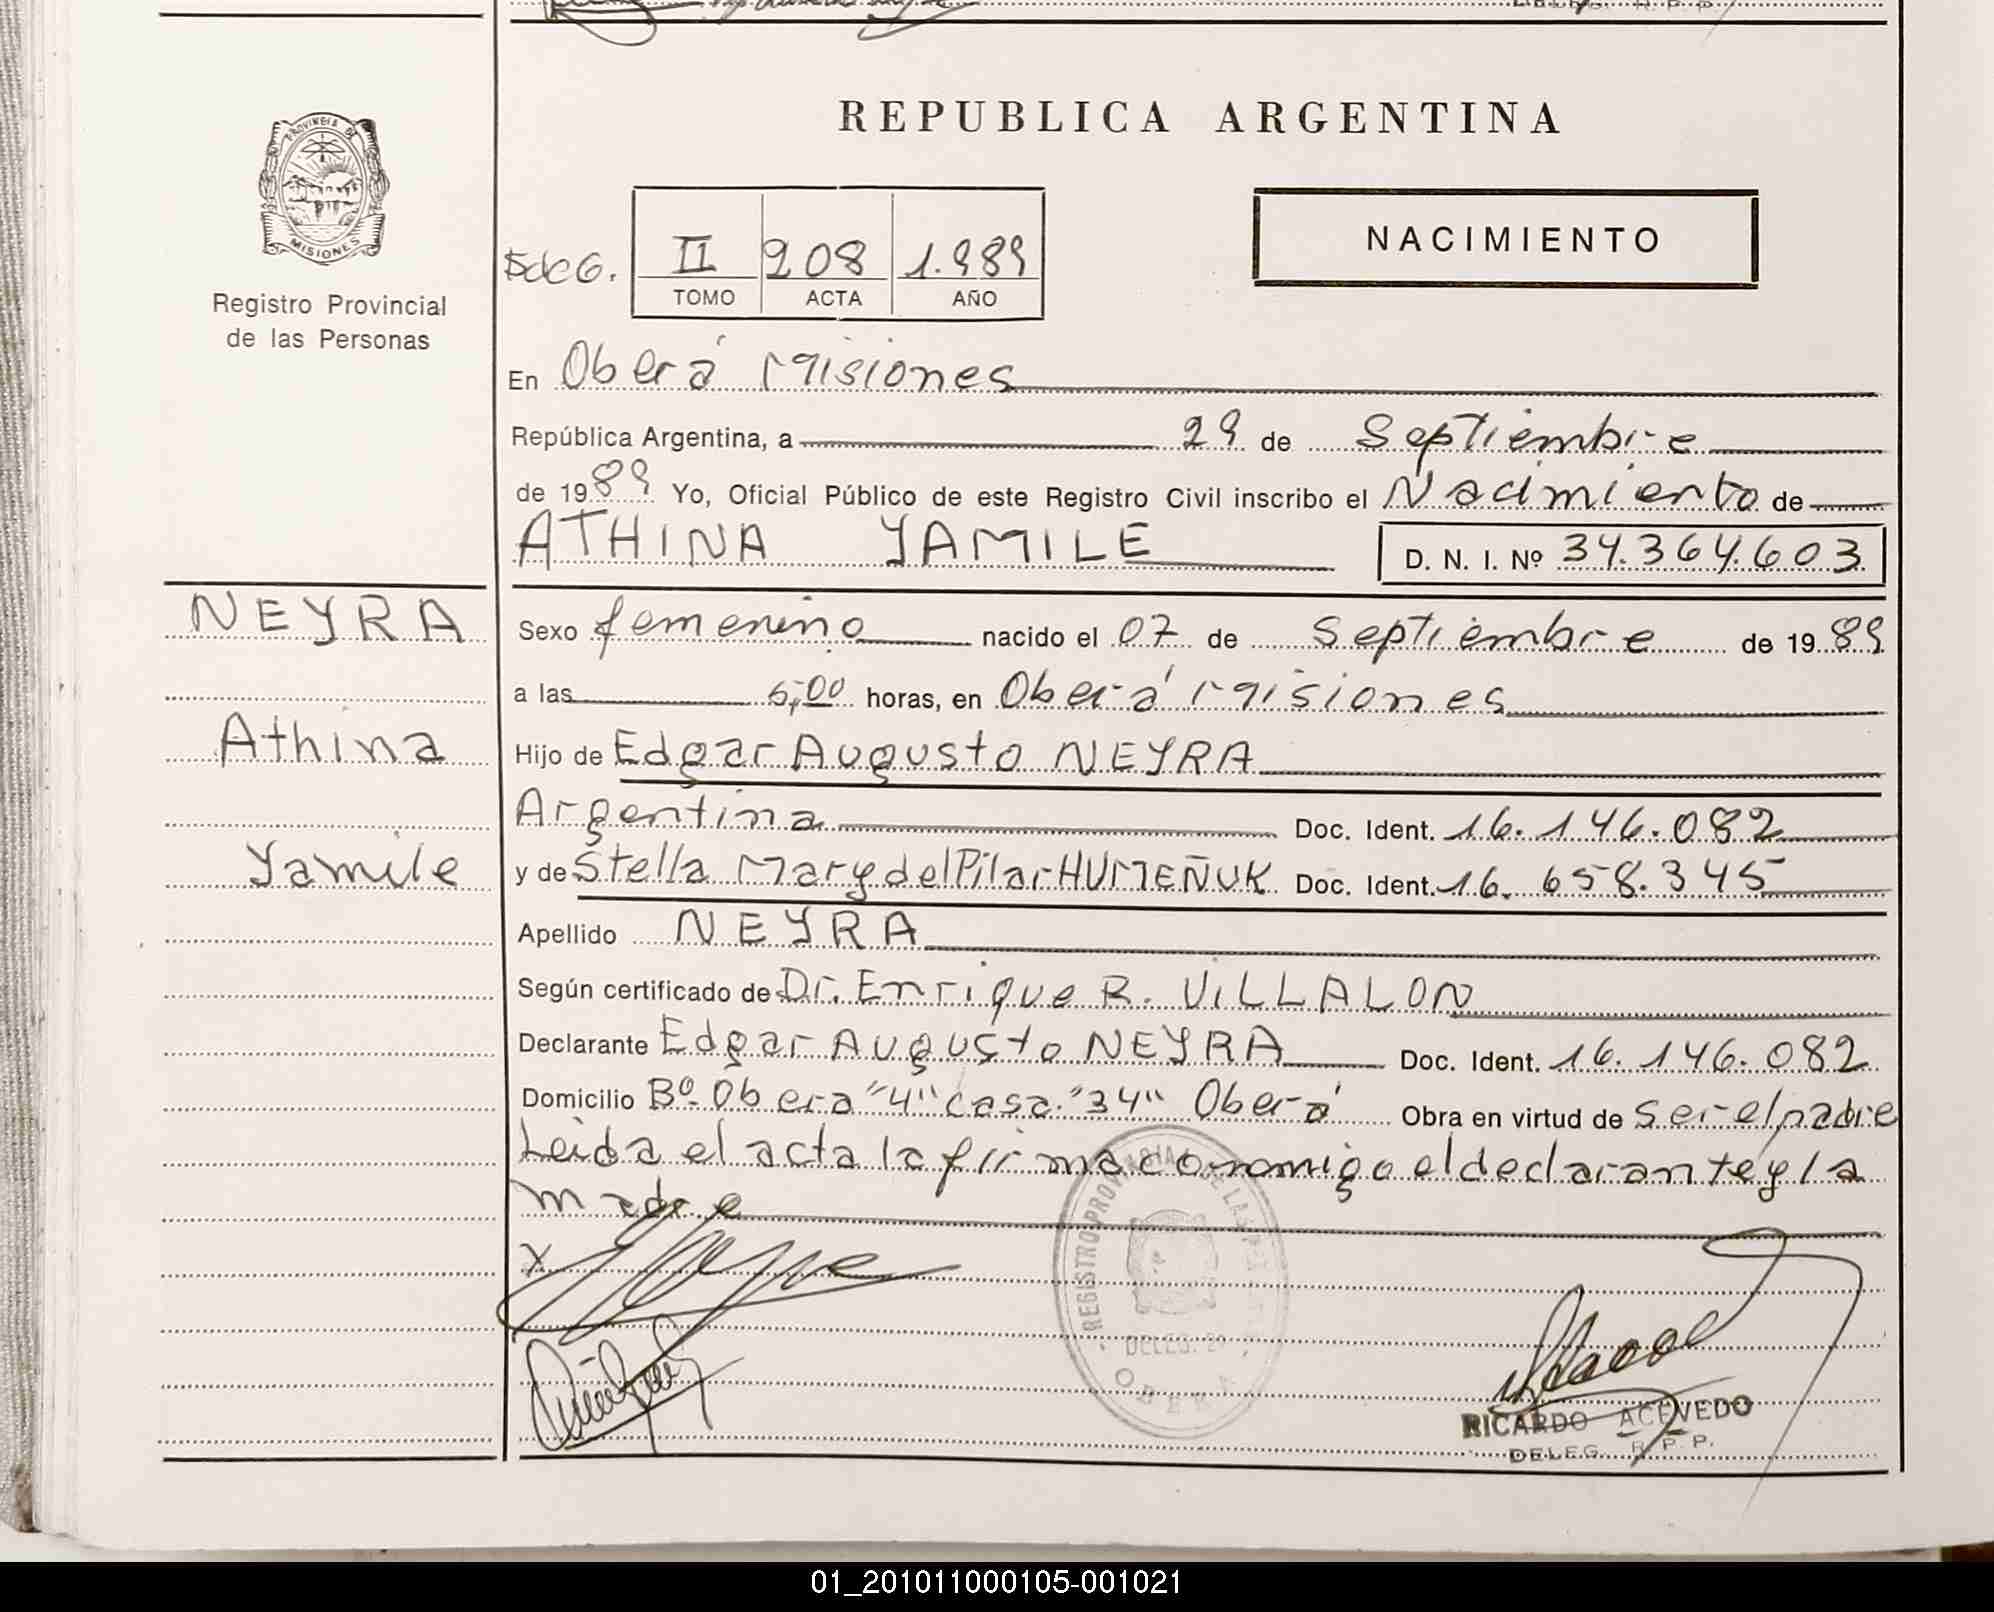 DELEG. R. P. P.
REPUBLICA ARGENTINA
PROVINCIA DE
MISIONES
Registro Provincial
de las Personas
II 908 1.989
TOMO ACTA AÑO
NACIMIENTO
En Oberá Misiones
República Argentina, a 29 de Septiembre
de 1989 Yo, Oficial Público de este Registro Civil inscribo el Nacimiento de
ATHINA YAMILE D. N. I. Nº 34.364.603
NEYRA
Sexo femenino nacido el 07 de Septiembre de 1989
a las 5,00 horas, en Oberá Misiones
Athina
Hijo de Edgar Augusto NEYRA
Argentina Doc. Ident. 16.146.082
Yamile
y de Stella Mary del Pilar HUMEÑUK Doc. Ident. 16.658.345
Apellido NEYRA
Según certificado de Dr. Enrique R. VILLALON
Declarante Edgar Augusto NEYRA Doc. Ident. 16.146.082
Domicilio Bº Obera "4" casa "34" Oberá Obra en virtud de ser el padre
Leida el acta la firma conmigo el declarante y la
madre
X
REGISTRO PROVINCIAL DE LAS
DELEG.
OBERA
RICARDO ACEVEDO
DELEG. R. P. P.
01_201011000105-001021